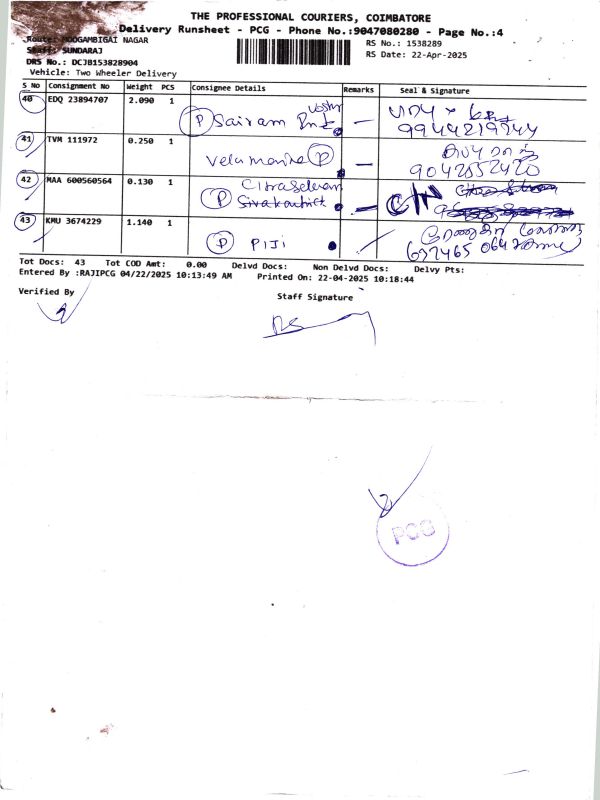 THE PROFESSIONAL COURIERS, COIMBATORE
Delivery Runsheet - PCG - Phone No.:9047080280 - Page No.:4
Route: MOOGAMBIGAI NAGAR
RS No.: 1538289
Staff: SUNDARAJ
RS Date: 22-Apr-2025
DRS No.: DCJB153828904
Vehicle: Two Wheeler Delivery
S No Consignment No Weight PCS Consignee Details Remarks Seal & Signature
40 EDQ 23894707 2.090 1 P Sairam —
9944219244
41 TVM 111972 0.250 1 P —
9042552420
42 MAA 600560564 0.130 1 P — C/N
43 KMU 3674229 1.140 1 P PIJI
Tot Docs: 43 Tot COD Amt: 0.00 Delvd Docs: Non Delvd Docs: Delvy Pts:
Entered By :RAJIPCG 04/22/2025 10:13:49 AM Printed On: 22-04-2025 10:18:44
Verified By
Staff Signature
PCG